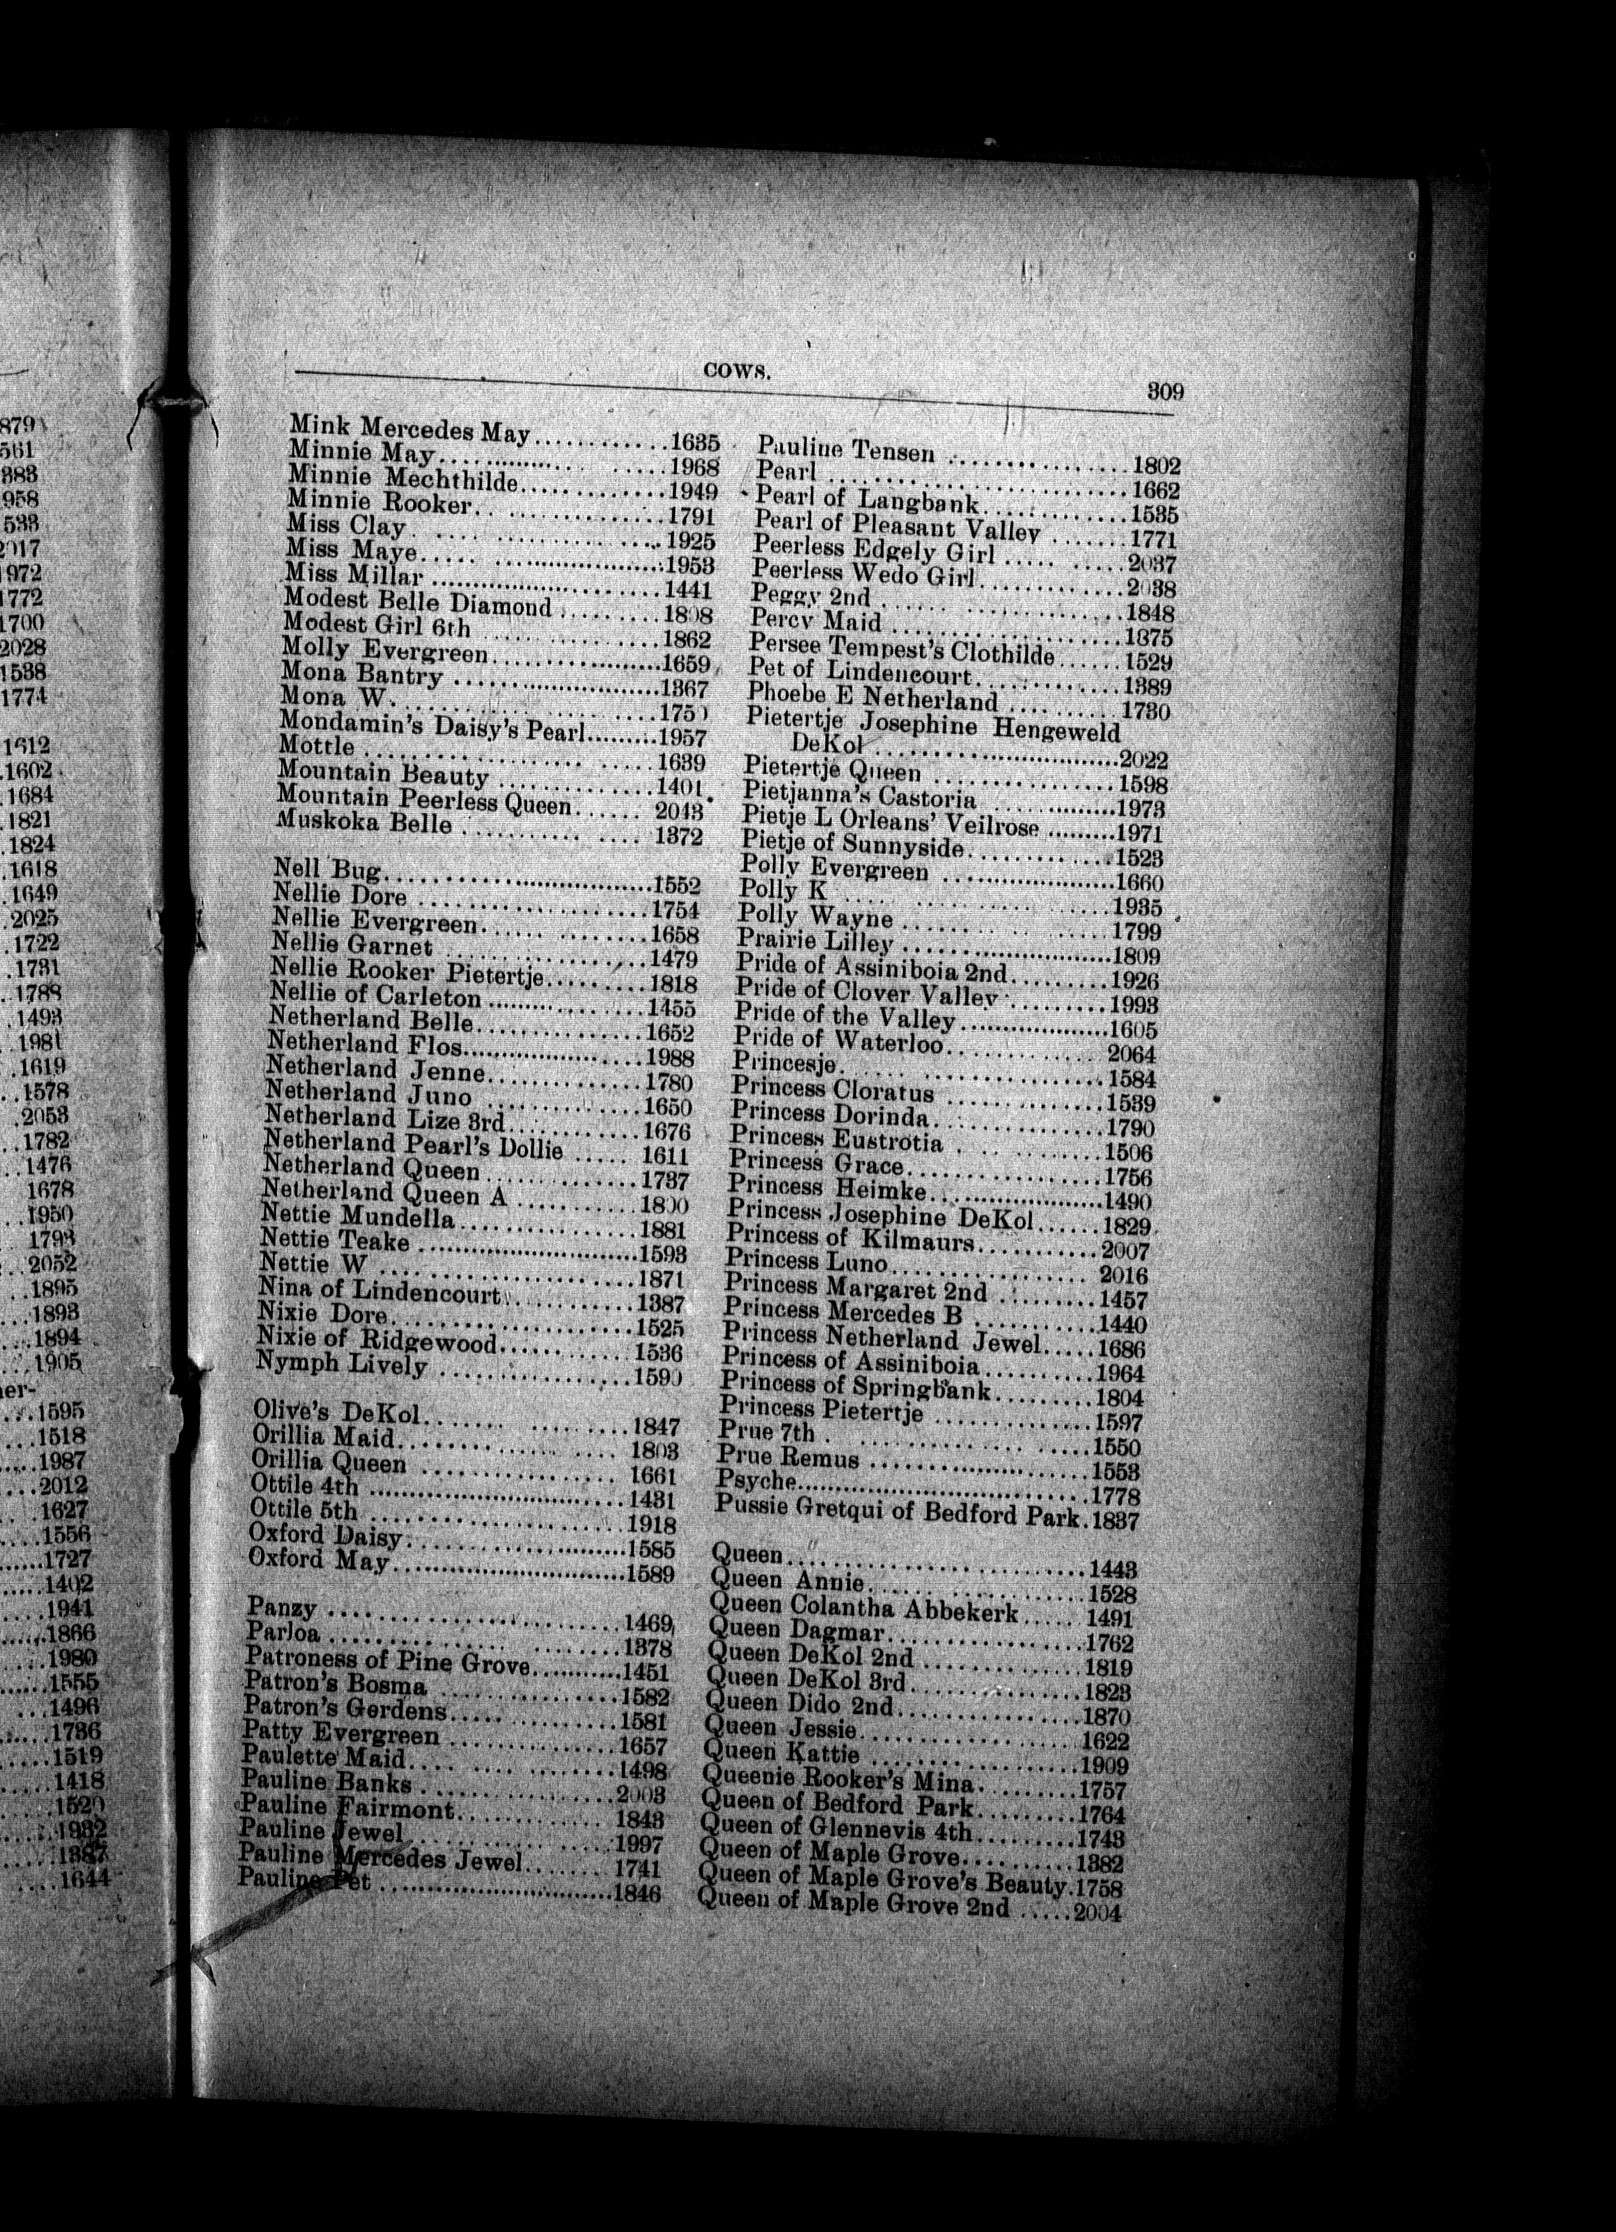 COWS.
309
Mink Mercedes May............1635
Minnie May...........................1968
Minnie Mechthilde..............1949
Minnie Rooker....................1791
Miss Clay..........................1925
Miss Maye..........................1953
Miss Millar..........................1441
Modest Belle Diamond..........1808
Modest Girl 6th..................1862
Molly Evergreen..................1659
Mona Bantry........................1367
Mona W............................1750
Mondamin's Daisy's Pearl.........1957
Mottle..............................1639
Mountain Beauty..................1401
Mountain Peerless Queen...... 2043
Muskoka Belle.................. 1372
Nell Bug............................1552
Nellie Dore........................1754
Nellie Evergreen..................1658
Nellie Garnet......................1479
Nellie Rooker Pietertje..........1818
Nellie of Carleton................1455
Netherland Belle..................1652
Netherland Flos....................1988
Netherland Jenne................1780
Netherland Juno..................1650
Netherland Lize 3rd..............1676
Netherland Pearl's Dollie..... 1611
Netherland Queen................1737
Netherland Queen A..............1800
Nettie Mundella..................1881
Nettie Teake........................1593
Nettie W............................1871
Nina of Lindencourt..............1387
Nixie Dore..........................1525
Nixie of Ridgewood..............1536
Nymph Lively......................1590
Olive's DeKol......................1847
Orillia Maid...................... 1803
Orillia Queen.................... 1661
Ottile 4th..........................1431
Ottile 5th..........................1918
Oxford Daisy........................1585
Oxford May..........................1589
Panzy................................1469
Parloa..............................1378
Patroness of Pine Grove...........1451
Patron's Bosma....................1582
Patron's Gerdens..................1581
Patty Evergreen..................1657
Paulette Maid......................1498
Pauline Banks......................2003
Pauline Fairmont................ 1843
Pauline Jewel......................1997
Pauline Mercedes Jewel....... 1741
Pauline Pet........................1846
Pauline Tensen....................1802
Pearl................................1662
Pearl of Langbank................1535
Pearl of Pleasant Valley.......1771
Peerless Edgely Girl............2037
Peerless Wedo Girl..............2038
Peggy 2nd..........................1848
Percy Maid..........................1875
Persee Tempest's Clothilde......1529
Pet of Lindencourt..............1389
Phoebe E Netherland.......... 1730
Pietertje Josephine Hengeweld
DeKol..............................2022
Pietertje Queen..................1598
Pietjanna's Castoria..............1973
Pietje L Orleans' Veilrose.........1971
Pietje of Sunnyside..............1523
Polly Evergreen....................1660
Polly K..............................1935
Polly Wayne........................1799
Prairie Lilley......................1809
Pride of Assiniboia 2nd.........1926
Pride of Clover Valley..........1993
Pride of the Valley................1605
Pride of Waterloo.............. 2064
Princesje............................1584
Princess Cloratus................1539
Princess Dorinda..................1790
Princess Eustrotia................1506
Princess Grace....................1756
Princess Heimke..................1490
Princess Josephine DeKol......1829
Princess of Kilmaurs............2007
Princess Luno.................... 2016
Princess Margaret 2nd..........1457
Princess Mercedes B............1440
Princess Netherland Jewel.....1686
Princess of Assiniboia..........1964
Princess of Springbank.........1804
Princess Pietertje................1597
Prue 7th............................1550
Prue Remus........................1553
Psyche..............................1778
Pussie Gretqui of Bedford Park.1837
Queen................................1443
Queen Annie........................1528
Queen Colantha Abbekerk..... 1491
Queen Dagmar......................1762
Queen DeKol 2nd................1819
Queen DeKol 3rd................1823
Queen Dido 2nd..................1870
Queen Jessie......................1622
Queen Kattie......................1909
Queenie Rooker's Mina..........1757
Queen of Bedford Park.........1764
Queen of Glennevis 4th.........1743
Queen of Maple Grove..........1382
Queen of Maple Grove's Beauty.1758
Queen of Maple Grove 2nd.....2004